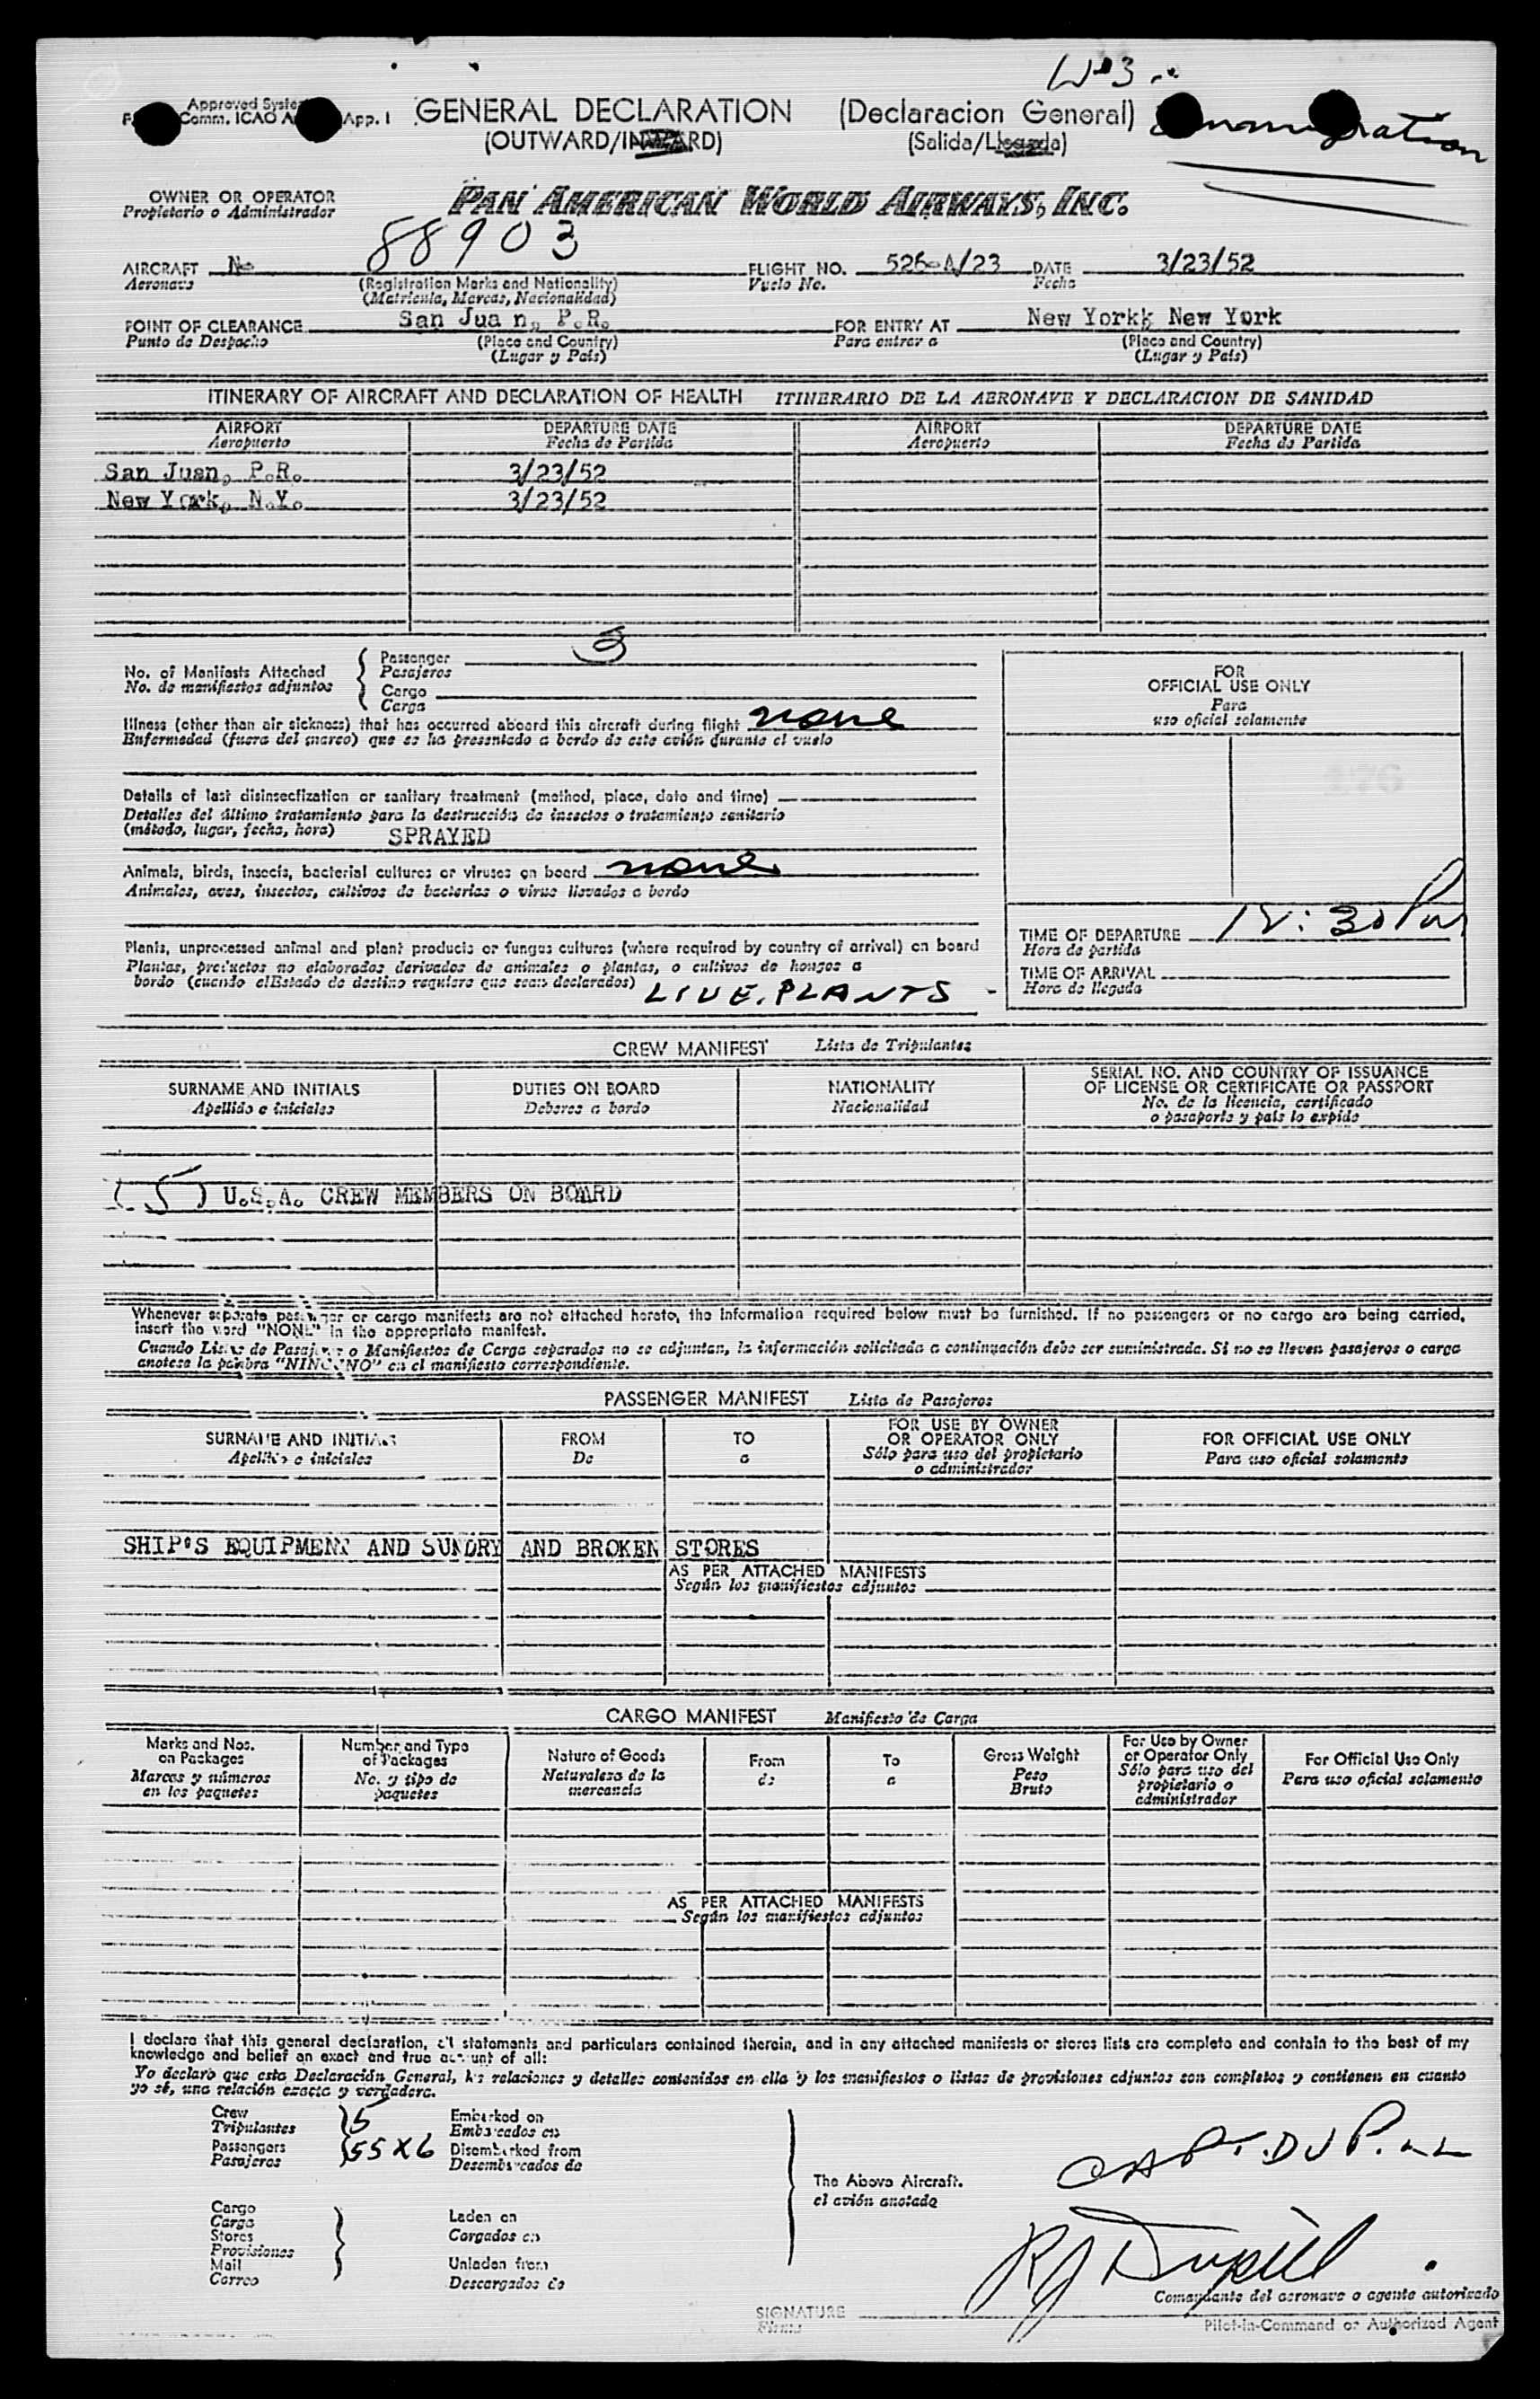 W-3
Approved System
Comm. ICAO A App. I
GENERAL DECLARATION (Declaracion General)
(OUTWARD/INWARD) (Salida/Llegada)
Immigration
OWNER OR OPERATOR
Propietario o Administrador
PAN AMERICAN WORLD AIRWAYS, INC.
AIRCRAFT N- 88903 FLIGHT NO. 526-A/23 DATE 3/23/52
Aeronave (Registration Marks and Nationality) Vuelo No. Fecha
(Matricula, Marcas, Nacionalidad)
POINT OF CLEARANCE San Jua n, P.R. FOR ENTRY AT New Yorkk New York
Punto de Despacho (Place and Country) Para entrar a (Place and Country)
(Lugar y País) (Lugar y País)
ITINERARY OF AIRCRAFT AND DECLARATION OF HEALTH ITINERARIO DE LA AERONAVE Y DECLARACION DE SANIDAD
AIRPORT DEPARTURE DATE AIRPORT DEPARTURE DATE
Aeropuerto Fecha de Partida Aeropuerto Fecha de Partida
San Juan, P.R. 3/23/52
New York, N.Y. 3/23/52
No. of Manifests Attached
No. de manifiestos adjuntos
Passenger 3
Pasajeros
Cargo
Carga
Illness (other than air sickness) that has occurred aboard this aircraft during flight none
Enfermedad (fuera del mareo) que se ha presentado a bordo de este avión durante el vuelo
Details of last disinsectization or sanitary treatment (method, place, date and time)
Detalles del último tratamiento para la destrucción de insectos o tratamiento sanitario
(método, lugar, fecha, hora) SPRAYED
Animals, birds, insects, bacterial cultures or viruses on board none
Animales, aves, insectos, cultivos de bacterias o virus llevados a bordo
Plants, unprocessed animal and plant products or fungus cultures (where required by country of arrival) on board
Plantas, productos no elaborados derivados de animales o plantas, o cultivos de hongos a
bordo (cuando elEstado de destino requiere que sean declarados) LIVE. PLANTS -
FOR
OFFICIAL USE ONLY
Para
uso oficial solamente
176
TIME OF DEPARTURE 12:30 Pm
Hora de partida
TIME OF ARRIVAL
Hora de llegada
CREW MANIFEST Lista de Tripulantes
SURNAME AND INITIALS DUTIES ON BOARD NATIONALITY SERIAL NO. AND COUNTRY OF ISSUANCE
OF LICENSE OR CERTIFICATE OR PASSPORT
Apellido e iniciales Deberes a bordo Nacionalidad No. de la licencia, certificado
o pasaporte y país lo expide
(5) U.S.A. CREW MEMBERS ON BOARD
Whenever separate passenger or cargo manifests are not attached hereto, the information required below must be furnished. If no passengers or no cargo are being carried,
insert the word "NONE" in the appropriate manifest.
Cuando Listas de Pasajeros o Manifiestos de Carga separados no se adjuntan, la información solicitada a continuación debe ser suministrada. Si no se lleven pasajeros o carga
anotese la palabra "NINGUNO" en el manifiesto correspondiente.
PASSENGER MANIFEST Lista de Pasajeros
SURNAME AND INITIALS FROM TO FOR USE BY OWNER
OR OPERATOR ONLY FOR OFFICIAL USE ONLY
Apellido e iniciales De a Sólo para uso del propietario
o administrador Para uso oficial solamente
SHIP'S EQUIPMENT AND SUNDRY AND BROKEN STORES
AS PER ATTACHED MANIFESTS
Según los manifiestos adjuntos
CARGO MANIFEST Manifiesto de Carga
Marks and Nos.
on Packages
Marcas y números
en los paquetes
Number and Type
of Packages
No. y tipo de
paquetes
Nature of Goods
Naturaleza de la
mercancia
From
de
To
a
Gross Weight
Peso
Bruto
For Use by Owner
or Operator Only
Sólo para uso del
propietario o
administrador
For Official Use Only
Para uso oficial solamente
AS PER ATTACHED MANIFESTS
Según los manifiestos adjuntos
I declare that this general declaration, all statements and particulars contained therein, and in any attached manifests or stores lists are complete and contain to the best of my
knowledge and belief an exact and true account of all:
Yo declaro que esta Declaración General, las relaciones y detalles contenidos en ella y los manifiestos o listas de provisiones adjuntos son completos y contienen en cuanto
yo sé, una relación exacta y verdadera.
Crew 5 Embarked on
Tripulantes Embarcados en
Passengers 55 X 6 Disembarked from
Pasajeros Desembarcados de
The Above Aircraft.
el avión anotado
CAPT. DUPILL
Cargo
Carga
Stores
Provisiones
Mail
Correo
Laden on
Cargados en
Unladen from
Descargados de
RJ Dupill
Comandante del aeronave o agente autorizado
SIGNATURE
Firma
Pilot-in-Command or Authorized Agent